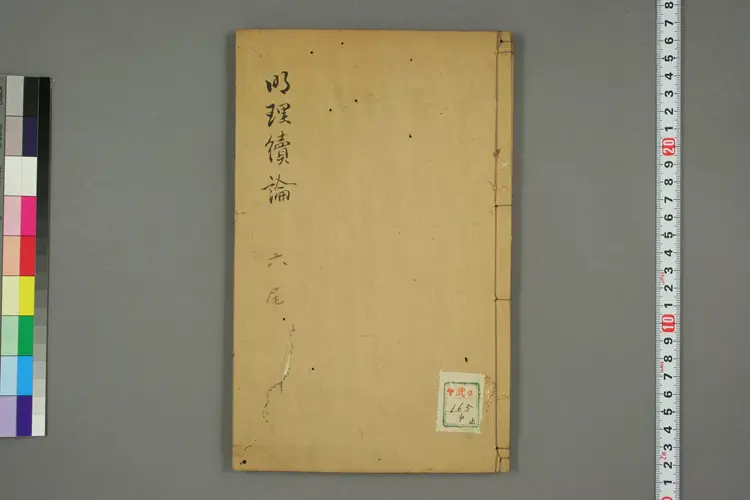 明理續論
六尾
165
4
8
7
6
5
4
3
2
1
20
9
8
7
6
5
4
3
2
1
10
9
8
7
6
5
4
3
2
1